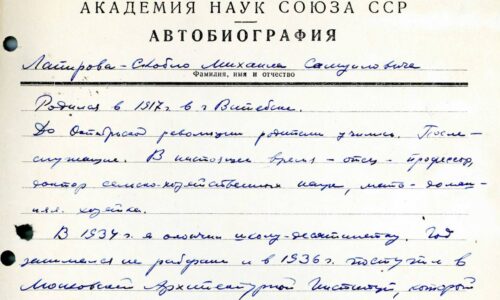 АКАДЕМИЯ НАУК СОЮЗА ССР
АВТОБИОГРАФИЯ
Лапирова-Скобло Михаила Самуиловича
Фамилия, имя и отчество
Родился в 1917г в г Витебске.
До Октябрьской революции родители учились. После-
служащие. В настоящее время - отец - профессор,
доктор сельско-хозяйственных наук, мать - домаш-
няя хозяйка.
В 1934г я окончил школу-десятилетку. Год
занимался не работая и в 1936г. поступил в
Московский Архитектурный Институт, который